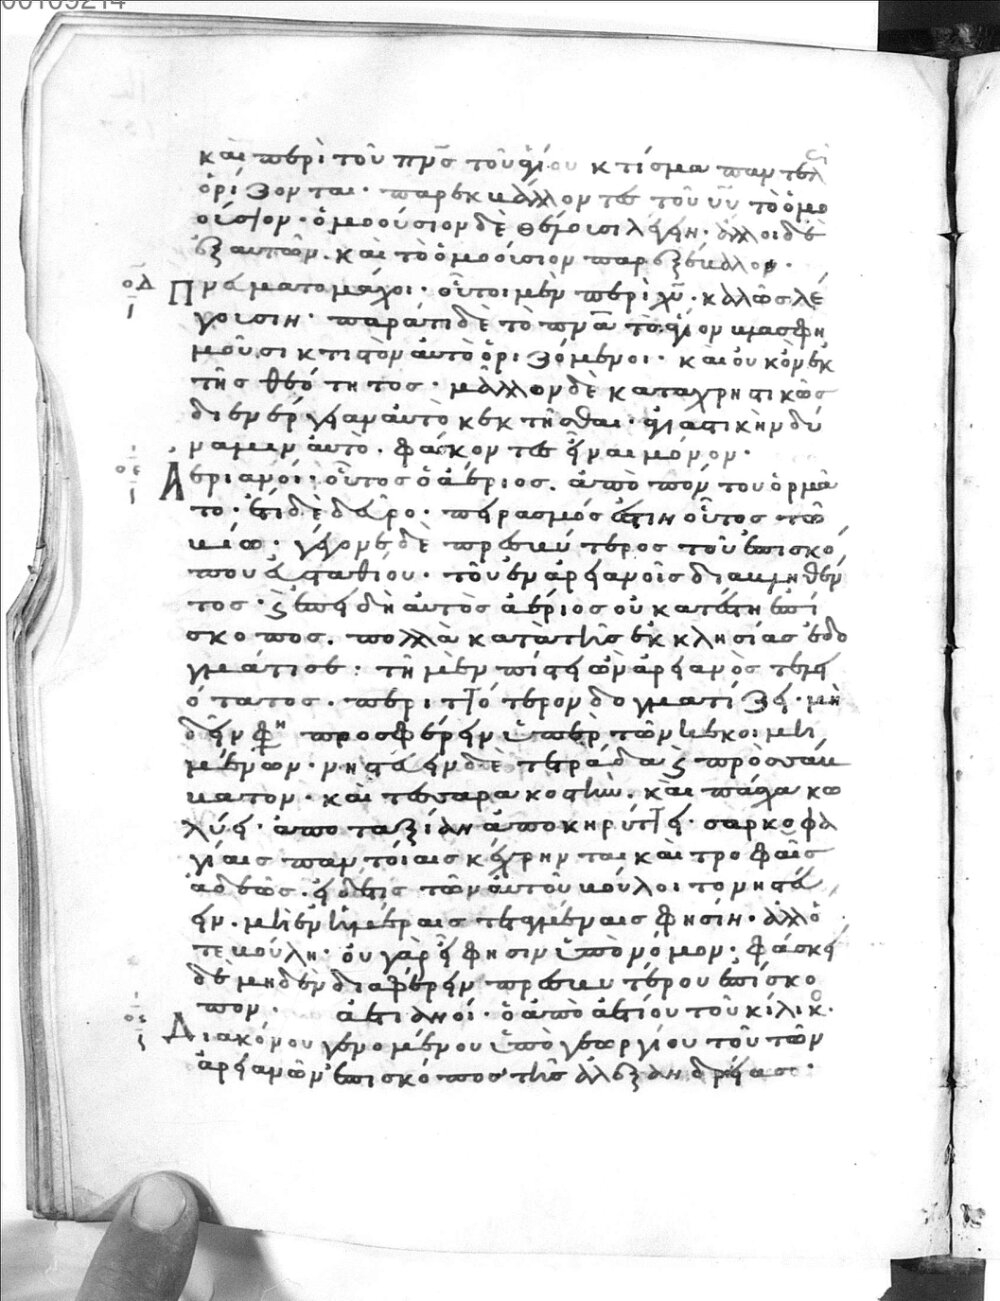 καὶ περὶ τοῦ πνς τοῦ ἁγίου κτίσμα παντελ
ὁρίζονται· παρεκβάλλοντες τοῦ υυ τὸ ὁμο
ούσιον· ὁμοούσιον δὲ θέλουσι λέγειν· ἄλλοι δὲ
ἐξ αὐτῶν. καὶ τὸ ὁμοούσιον παρεξέβαλον·
οδ Πνευματομάχοι· οὗτοι μὲν περὶ χυ· καλῶς λέ
γουσιν· παρὰ τι δὲ τὸ πνα τὸ ἅγιον βλασφη
μοῦσι κτιστὸν αὐτὸ ὁριζόμενοι· καὶ οὐκ ὸν ἐκ
τῆς θεότητος· μᾶλλον δὲ καταχρηστικῶς
δι ἐνέργειαν αὐτὸ κεκτῆσθαι· ἁγιαστικὴν δύ
ναμιν αὐτὸ. φάσκοντες εἶναι μόνον·
οε Ἀεριανοί· οὗτος ὁ ἀέριος. ἀπὸ πόντου ὁρμᾶ
το· ἔτι δὲ δεῦρο· πειρασμός ἐστιν οὗτος τῶ
βίω· γέγονε δὲ πρεσβύτερος τοῦ ἐπισκό
που εὐσταθίου· τοῦ ἐν ἀρειανοῖς διαβληθέν
τος· ἐπειδὴ αὐτὸς ἀέριος οὐ κατέστη ἐπί
σκοπος. πολλὰ κατὰ τῆς ἐκκλησίας ἐδο
γμάτισε: τῆ μὲν πίστει ὢν ἀρειανὸς τελει
ότατος. περιττότερον δογματίζει· μὴ
δεῖν φη προσφέρειν ὑπὲρ τῶν κεκοιμη
μένων· νηστεύειν δὲ τετράδα ς πρόσσαβ
βατον· καὶ τεσσαρακοστὴν. καὶ πάσχα κω
λύει· ἀποταξίαν ἀποκηρύττει· σαρκοφα
γίαις παντοίαις κέχρηνται καὶ τροφαῖς
ἀδεῶς. εἰ δέ τις τῶν αὐτοῦ βούλοιτο νηστεύ
ειν· μὴ ἐν ἡμέραις τεταγμέναις φησίν· ἀλλ ὅ
τε βούλη· οὐ γὰρ εἶ φησιν ὑπὸ νόμον· φάσκει
δὲ μηδὲν διαφέρειν πρεσβυτέρου ἐπίσκο
πον· ἀετιανοί· ὁ ἀπὸ ἀετίου τοῦ κίλικ·
ος Διακόνου γενομένου ὑπὸ γεωργίου τοῦ τῶν
ἀρειανῶν ἐπισκόπος τῆς ἀλεξανδρείας·